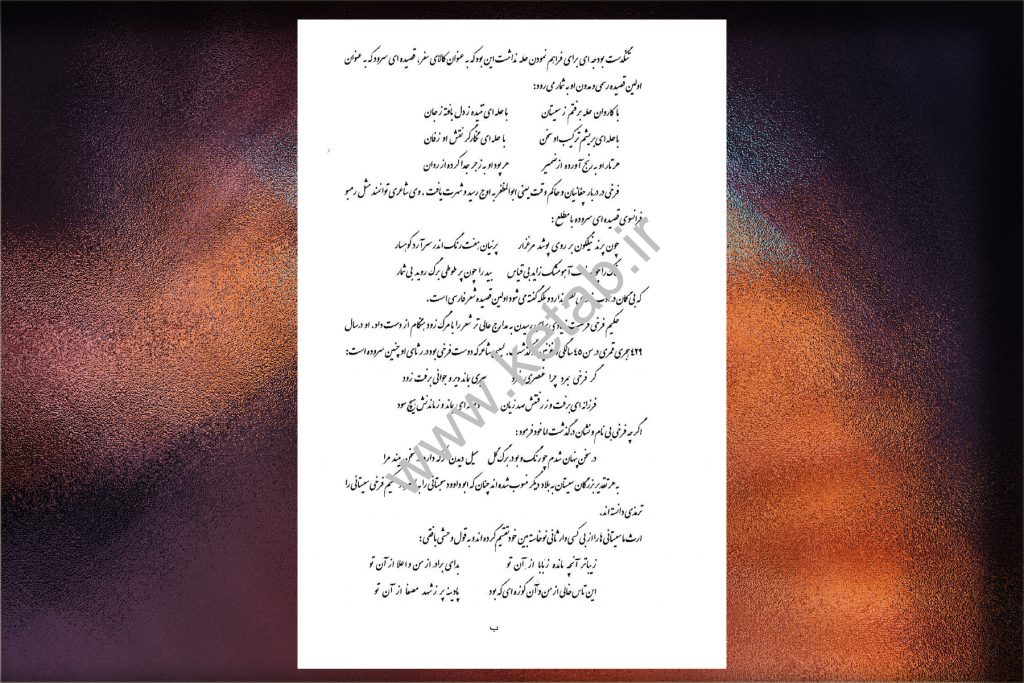 تنگدست بودجه ای برای فراهم نمودن حله نداشت این بود که به عنوان کالای سفر، قصیده ای سرود که به عنوان
اولین قصیده رسمی و مدون او به شمار می رود:
با کاروان حله برفتم ز سیستان با حله ای تنیده ز دل بافته ز جان
با حله ای بریشم ترکیب او سخن با حله ای نگارگر نقش او زفان
هر تار او به رنج آورده از ضمیر هر پود او به زجر جدا کرده از روان
فرخی در دربار چغانیان و حاکم وقت یعنی ابوالمظفر به اوج رسید و شهرت یافت. وی شاعری توانمند مثل رمبو
فرانسوی قصیده ای سروده با مطلع:
چون پرند نیلگون بر روی پوشد مرغزار پرنیان هفت رنگ اندر سر آرد کوهسار
خاک را آهو مشک زاید بی قیاس بید را چون پر طوطی برگ روید بی شمار
که بی گمان در ندارد و بلکه گفته می شود اولین قصیده شعر فارسی است.
حکیم فرخی فرصت رسیدن به مدارج عالی تر شعر را با مرگ زود هنگام از دست داد. او در سال
۴۲۹ هجری قمری در سن ۴۵ سالگی شاعر که دوست فرخی بود در رثای او چنین سروده است:
گر فرخی بمرد چرا عنصری نمرد پیری بماند دیر و جوانی برفت زود
فرزانه ای برفت و ز رفتنش صد زیان دیوانه ای بماند و ز ماندنش هیچ سود
اگر چه فرخی بی نام و نشان درگذشت اما خود فرمود:
در سخن پنهان شدم چو رنگ و بو در برگ گل میل دیدن هر که دارد در سخن بیند مرا
به هر تقدیر بزرگان سیستان به بلاد دیگر منسوب شده اند چنان که ابوداوود سجستانی را حکیم فرخی سیستانی را
ترمذی دانسته اند.
ارث ما سیستانی ها را از بی کسی وارثانی نوخاسته بین خود تقسیم کرده اند و به قول وحشی بافقی:
زیباتر آنچه مانده ز بابا از آن تو بد ای برادر از من و اعلا از آن تو
این تاس خالی از من و آن کوزه ای که بود پارینه پر ز شهد مصفا از آن تو
ب
www.ketab.ir